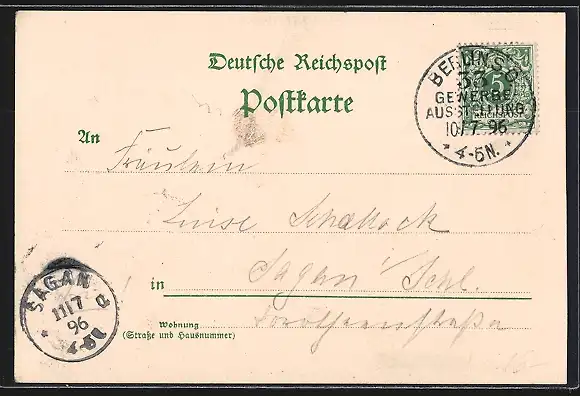 Deutsche Reichspost
Postkarte
BERLIN S.O.
33
GEWERBE
AUSSTELLUNG
10/7 96
* 4-5N. *
5
REICHSPOST
An
Fräulein
Luise Schallock
in
Sagan i/Schl.
Dorotheenstraße
Wohnung
(Straße und Hausnummer)
SAGAN
11/7
96